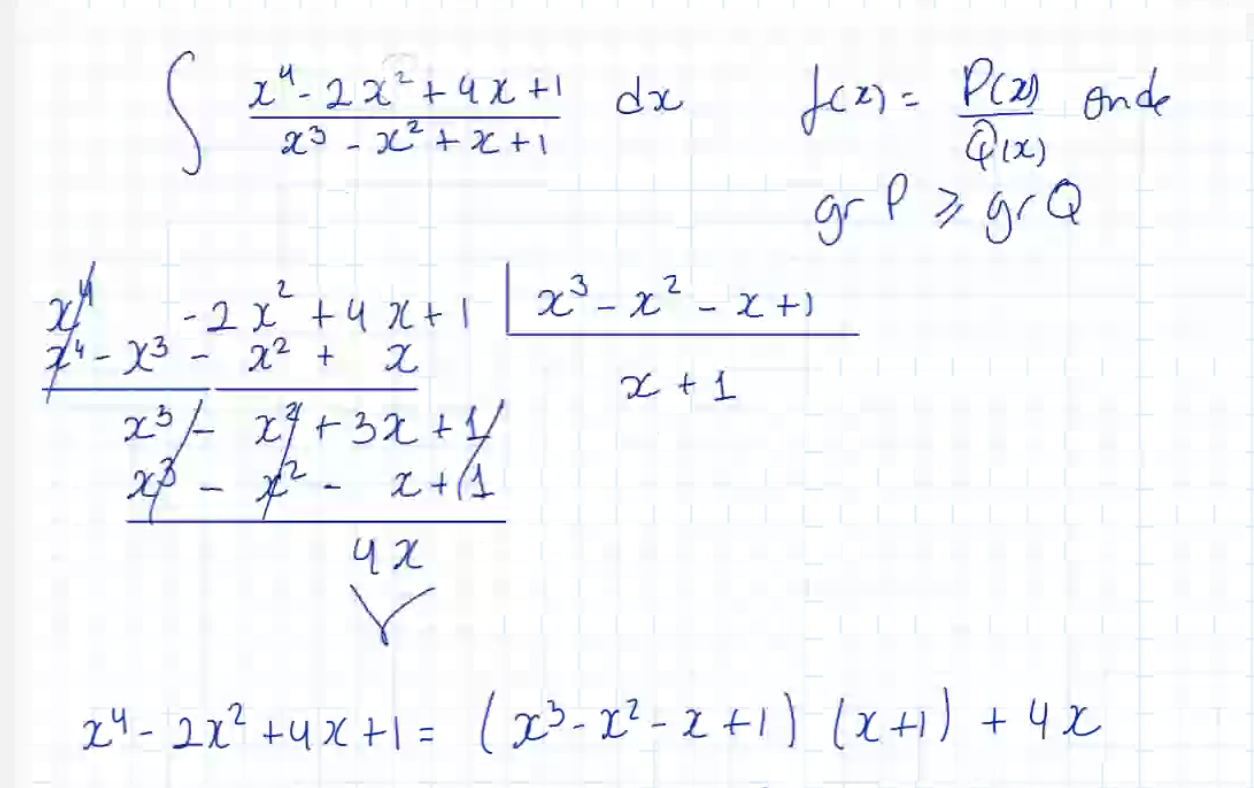 ∫ (x⁴ - 2x² + 4x + 1)/(x³ - x² + x + 1) dx f(x) = P(x)/Q(x) onde
gr P ≥ gr Q
x⁴ - 2x² + 4x + 1 | x³ - x² - x + 1
x⁴ - x³ - x² + x
x + 1
x³ - x² + 3x + 1
x³ - x² - x + 1
4x
x⁴ - 2x² + 4x + 1 = (x³ - x² - x + 1) (x + 1) + 4x